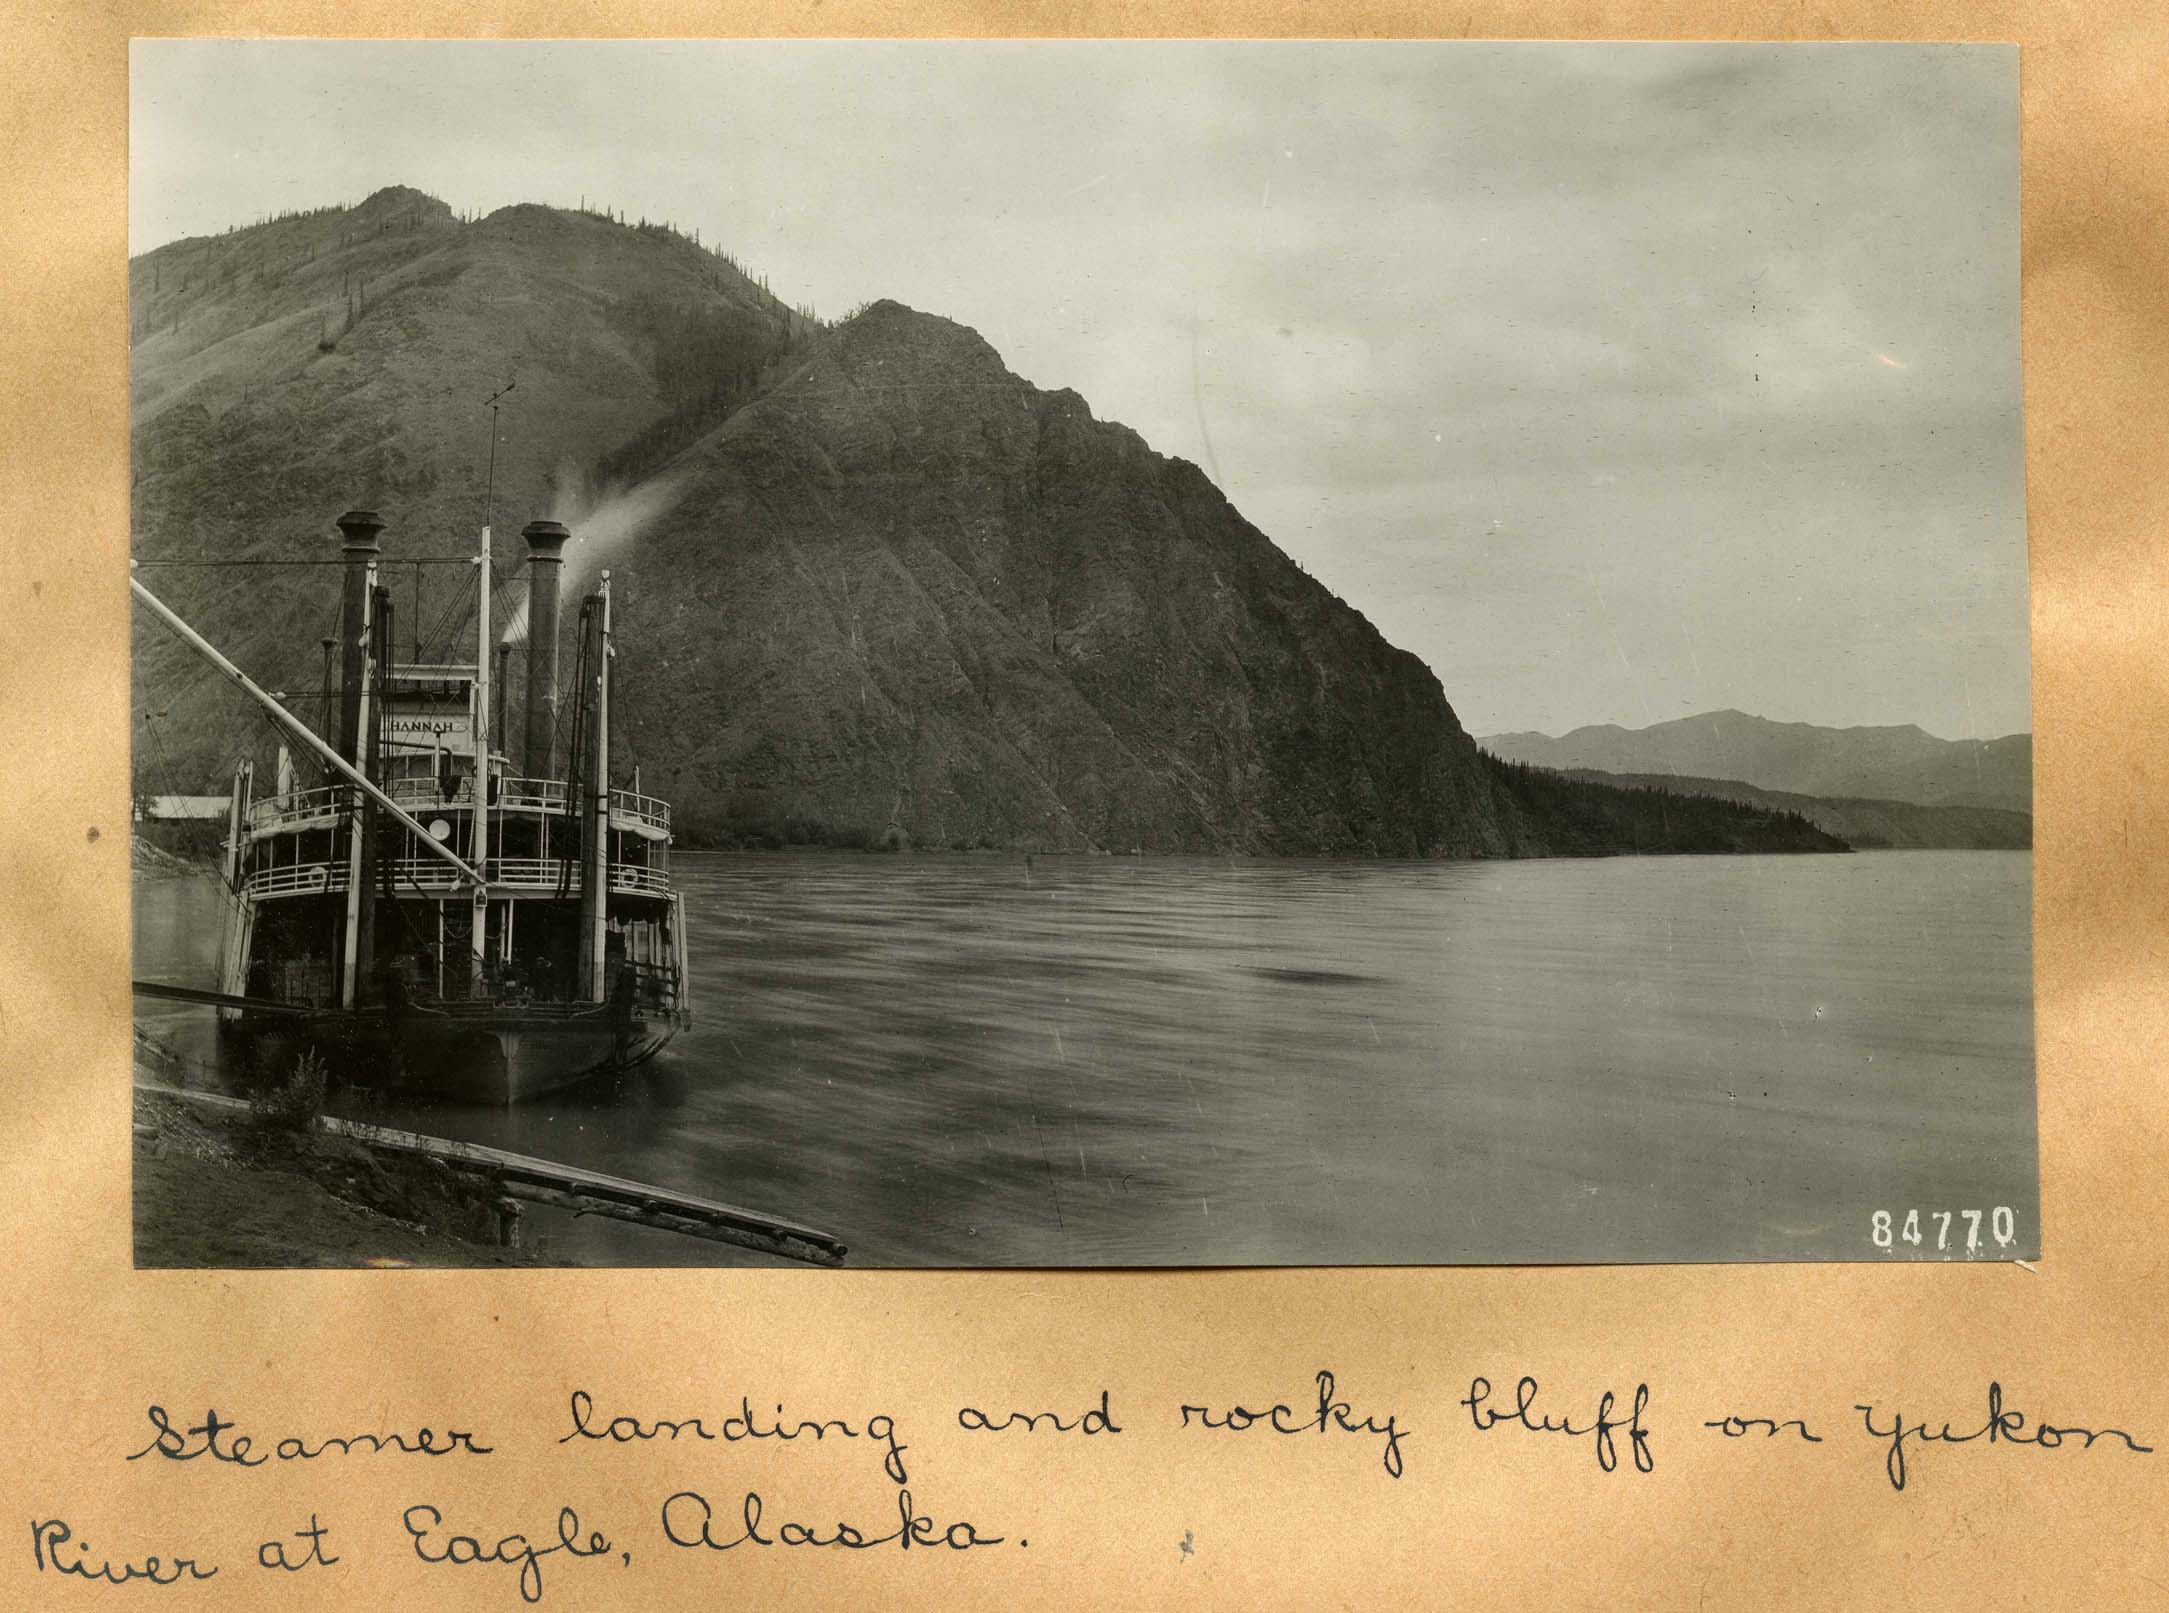 HANNAH
84770
Steamer landing and rocky bluff on Yukon
River at Eagle, Alaska.